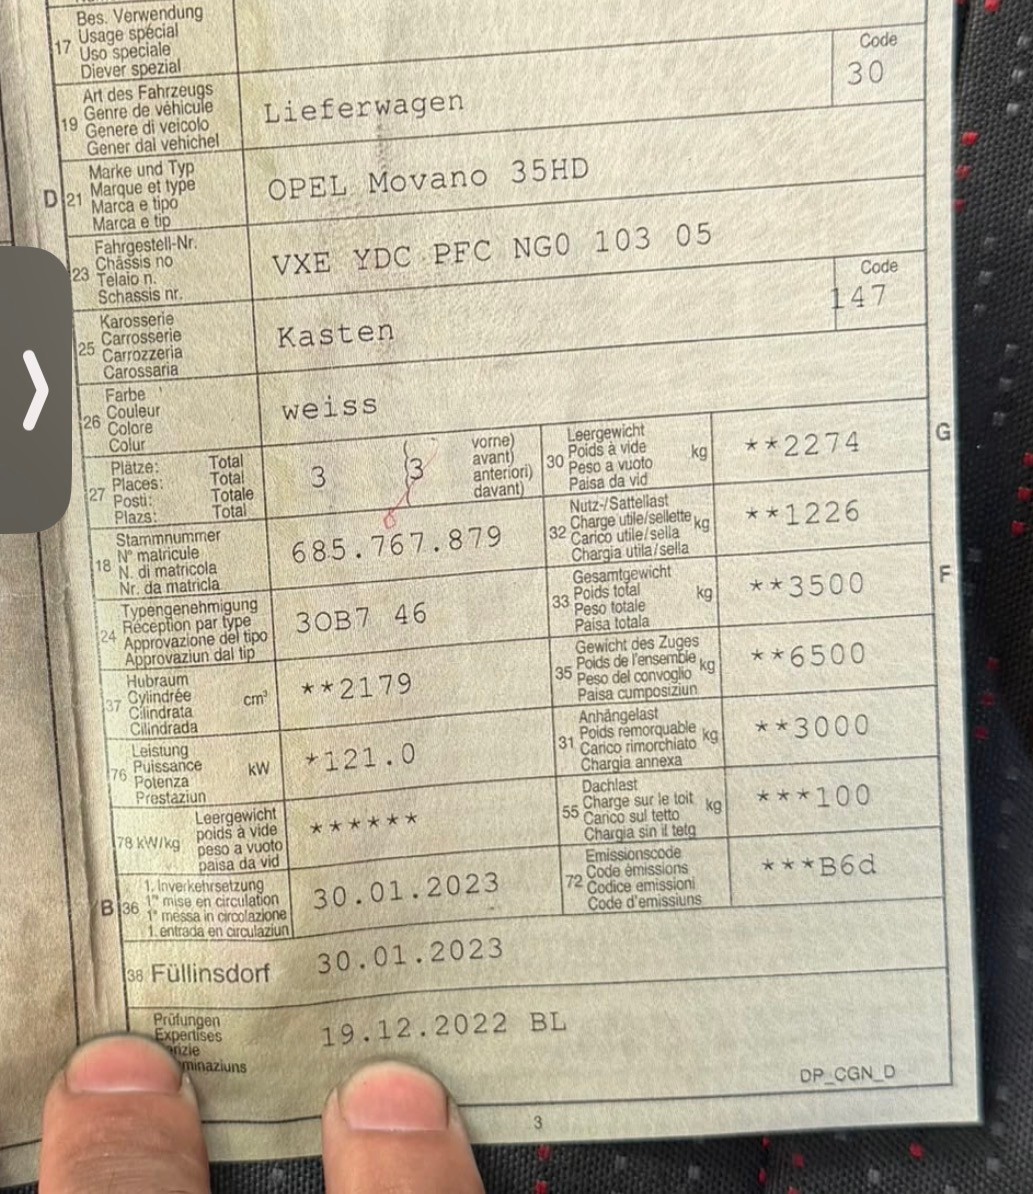 17 Bes. Verwendung
Usage spécial
Uso speciale
Diever spezial
19 Art des Fahrzeugs
Genre de véhicule
Genere di veicolo
Gener dal vehichel
Lieferwagen
Code
30
D 21 Marke und Typ
Marque et type
Marca e tipo
Marca e tip
OPEL Movano 35HD
23 Fahrgestell-Nr.
Châssis no
Telaio n.
Schassis nr.
VXE YDC PFC NG0 103 05
25 Karosserie
Carrosserie
Carrozzeria
Carossaria
Kasten
Code
147
26 Farbe
Couleur
Colore
Colur
weiss
27 Plätze: Total
Places: Total
Posti: Totale
Plazs: Total
3 (3 vorne)
avant)
anteriori)
davant)
30 Leergewicht
Poids à vide
Peso a vuoto
Paisa da vid
kg
**2274
G
18 Stammnummer
N° matricule
N. di matricola
Nr. da matricla
685.767.879
32 Nutz-/Sattellast
Charge utile/sellette
Carico utile/sella
Chargia utila/sella
kg
**1226
24 Typengenehmigung
Réception par type
Approvazione del tipo
Approvaziun dal tip
3OB7 46
33 Gesamtgewicht
Poids total
Peso totale
Paisa totala
kg
**3500
F
37 Hubraum
Cylindrée
Cilindrata
Cilindrada
cm³
**2179
35 Gewicht des Zuges
Poids de l'ensemble
Peso del convoglio
Paisa cumposiziun
kg
**6500
76 Leistung
Puissance
Potenza
Prestaziun
kW
*121.0
31 Anhängelast
Poids remorquable
Carico rimorchiato
Chargia annexa
kg
**3000
78 kW/kg Leergewicht
poids à vide
peso a vuoto
paisa da vid
******
55 Dachlast
Charge sur le toit
Carico sul tetto
Chargia sin il tetg
kg
***100
B 36 1. Inverkehrsetzung
1re mise en circulation
1a messa in circolazione
1. entrada en circulaziun
30.01.2023
72 Emissionscode
Code émissions
Codice emissioni
Code d'emissiuns
***B6d
38 Füllinsdorf
30.01.2023
Prüfungen
Expertises
19.12.2022 BL
DP_CGN_D
3